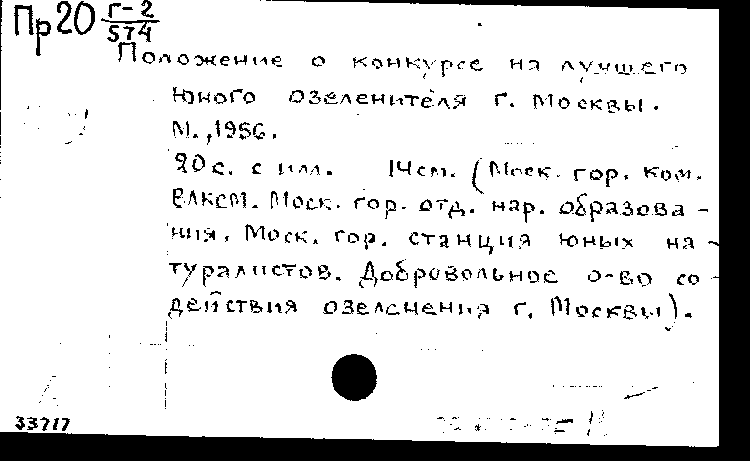 Пр20 Г-2/574
Положение о конкурсе на лучшего
юного озеленителя г. Москвы.
М., 1956.
20с. с илл. 14см. (Моск. гор. ком.
ВЛКСМ. Моск. гор. отд. нар. образова-
ния. Моск. гор. станция юных на-
туралистов. Добровольное о-во со-
действия озеленения г. Москвы).
33717